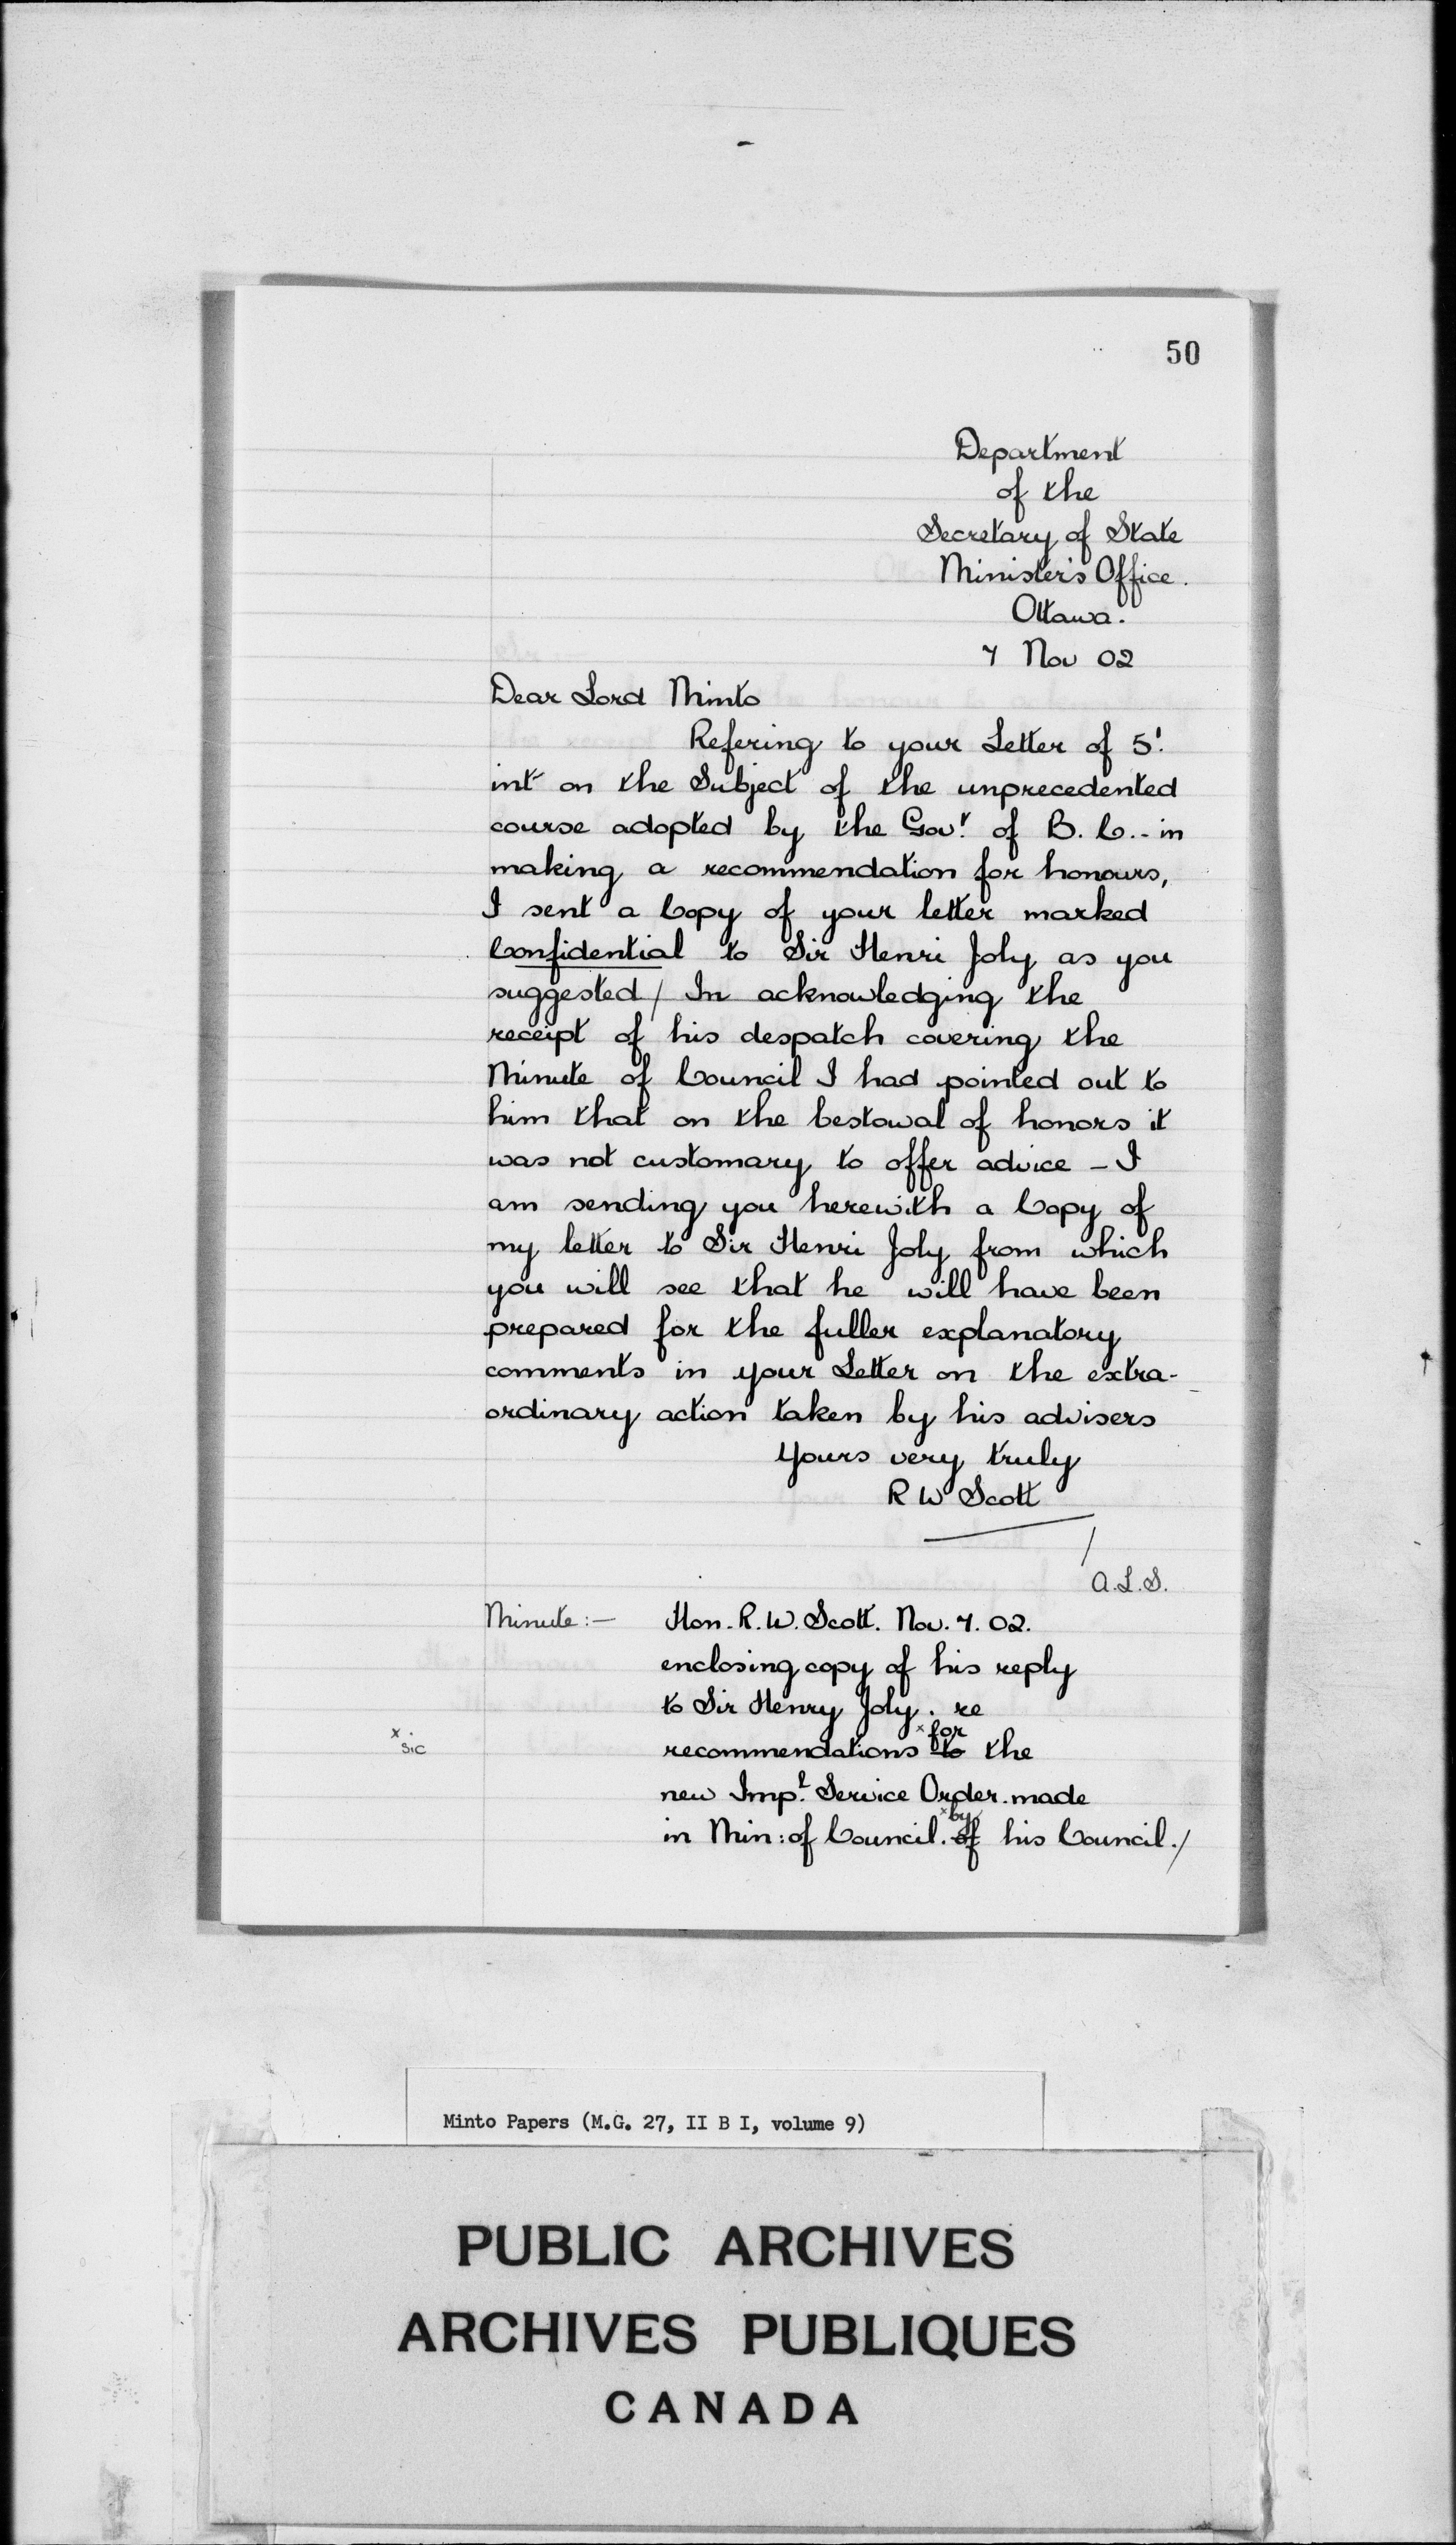 50
Department
of the
Secretary of State
Minister's Office.
Ottawa.
7 Nov 02
Dear Lord Minto
Refering to your Letter of 5!
int on the Subject of the unprecedented
course adopted by the Gov.r of B. C. - in
making a recommendation for honours,
I sent a Copy of your letter marked
Confidential to Sir Henri Joly as you
suggested / In acknowledging the
receipt of his despatch covering the
Minute of Council I had pointed out to
him that on the bestowal of honors it
was not customary to offer advice - I
am sending you herewith a Copy of
my letter to Sir Henri Joly from which
you will see that he will have been
prepared for the fuller explanatory
comments in your Letter on the extra-
ordinary action taken by his advisers
Yours very truly
R W Scott
/
A.L.S.
Minute :— Hon. R. W. Scott. Nov. 7. 02.
enclosing copy of his reply
to Sir Henry Joly. re
x sic
recommendations to x for the
new Imp.l Service Order. made
in Min: of Council. of x by his Council./
Minto Papers (M.G. 27, II B I, volume 9)
PUBLIC ARCHIVES
ARCHIVES PUBLIQUES
CANADA